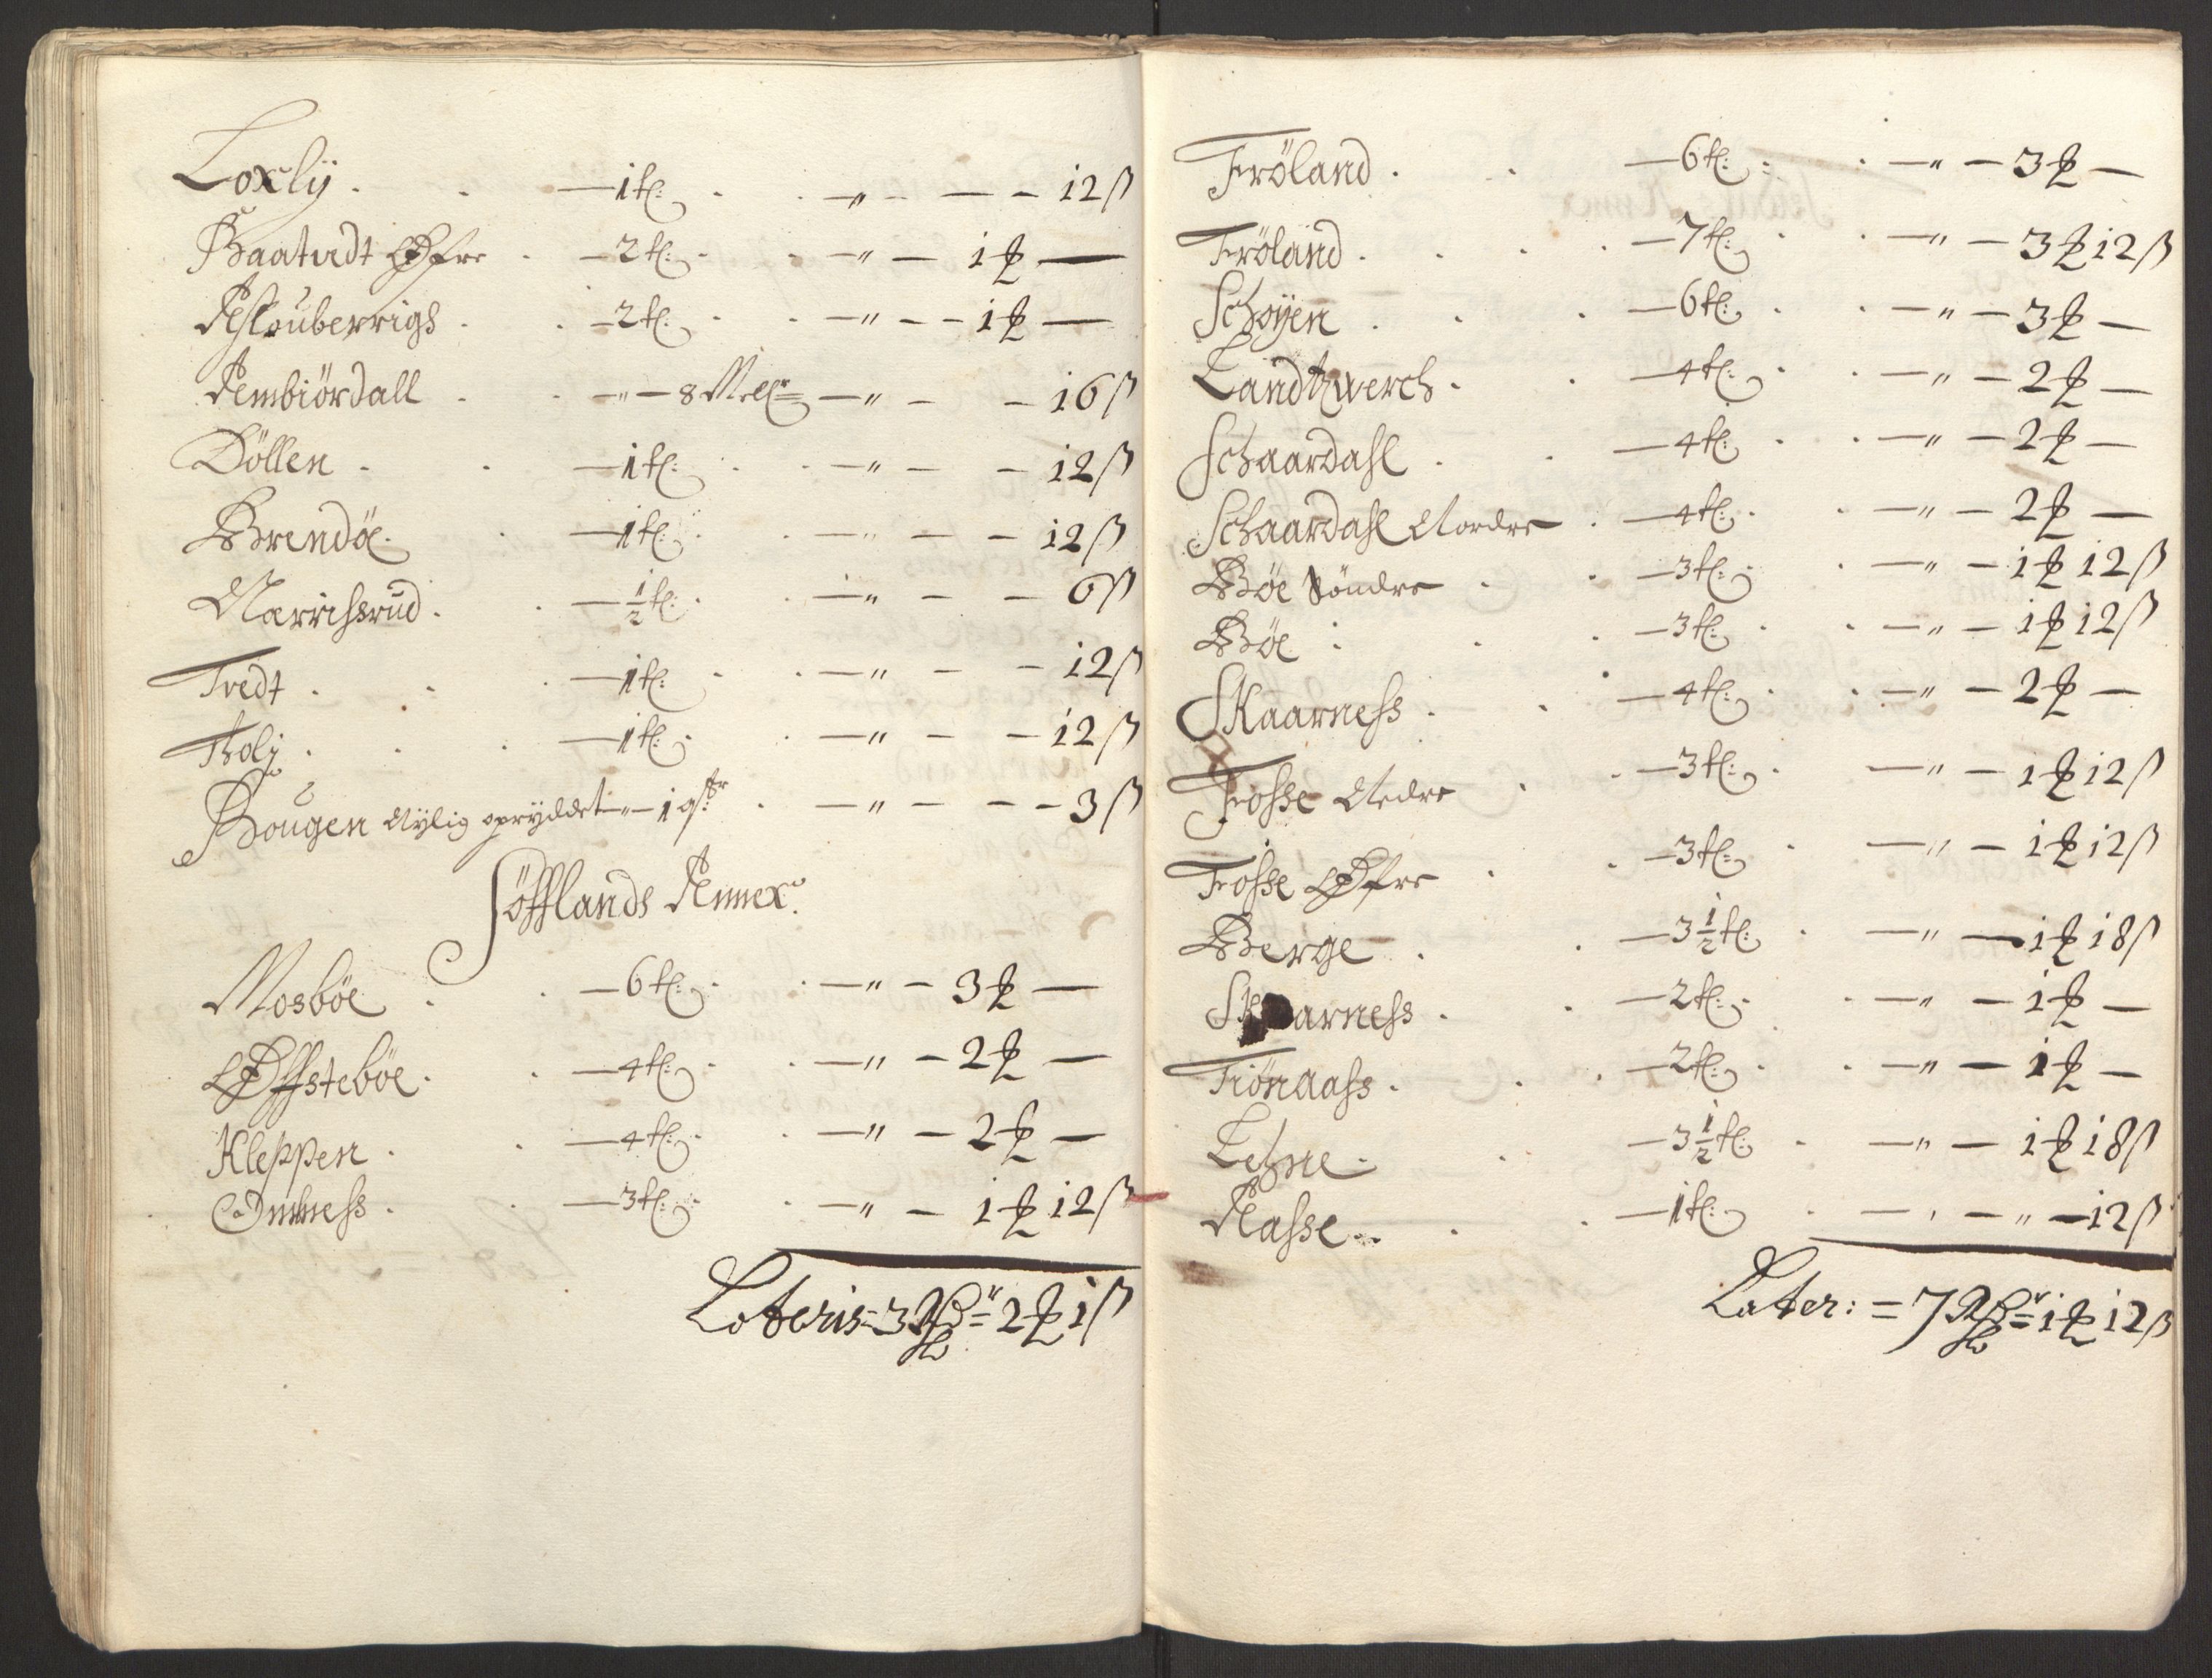 Loxlij . . — 1 tl: . . — " — — 12 ß
Baatvedt Øfre . — 2 tl: . . — " — 1 ₰ —
Aslouberrigs . . — 2 tl: . . — " — 1 ₰ —
Aembiördall . . — " — 8 Mel: — " — — 16 ß
Döllen . . — 1 tl: . . — " — — 12 ß
Brendöe . . — 1 tl: . . — " — — 12 ß
Narrissrud . . — ½ tl: . . — " — — 6 ß
Tvedt . . — 1 tl: . . — " — — 12 ß
Tholj . . . — 1 tl: . . — " — — 12 ß
Bougen Nÿlig oprÿddet — " — 1 qstr . — " — — 3 ß
Söfflands Annex:
Mosböe . . — 6 tl: . . — " — 3 ₰ —
Øffsteböe . . — 4 tl: . . — " — 2 ₰ —
Kleppen . . — 4 tl: . . — " — 2 ₰ —
Omness . . — 3 tl: . . — " — 1 ₰ 12 ß
Lateris = 3 Rdr = 2 ₰ 1 ß
Fröland . . — 6 tl: . — " — 3 ₰ —
Fröland . . . — 7 tl: . . — " — 3 ₰ 12 ß
Schoÿen . . . — 6 tl: . . — " — 3 ₰ —
Landtzwerch . . — 4 tl: . . — " — 2 ₰ —
Schaardahl . . — 4 tl: . . — " — 2 ₰ —
Schaardahl Nordre . — 4 tl: . . — " — 2 ₰ —
Böe Söndre . . — 3 tl: . — " — 1 ₰ 12 ß
Böe . . . — 3 tl: . . — " — 1 ₰ 12 ß
Skaarness . . — 4 tl: . . — " — 2 ₰ —
Fosse Nedre . . — 3 tl: . — " — 1 ₰ 12 ß
Fosse Øfre . . — 3 tl: . — " — 1 ₰ 12 ß
Berge . . — 3 ½ tl: . — " — 1 ₰ 18 ß
Skaarness . . — 2 tl: . . — " — 1 ₰ —
Tiönaass . . . — 2 tl: . . — " — 1 ₰ —
Lehne . . — 3 ½ tl: . — " — 1 ₰ 18 ß
Aasse . . . — 1 tl: . — " — " — 12 ß
Later: = 7 Rdr = 1 ₰ 12 ß